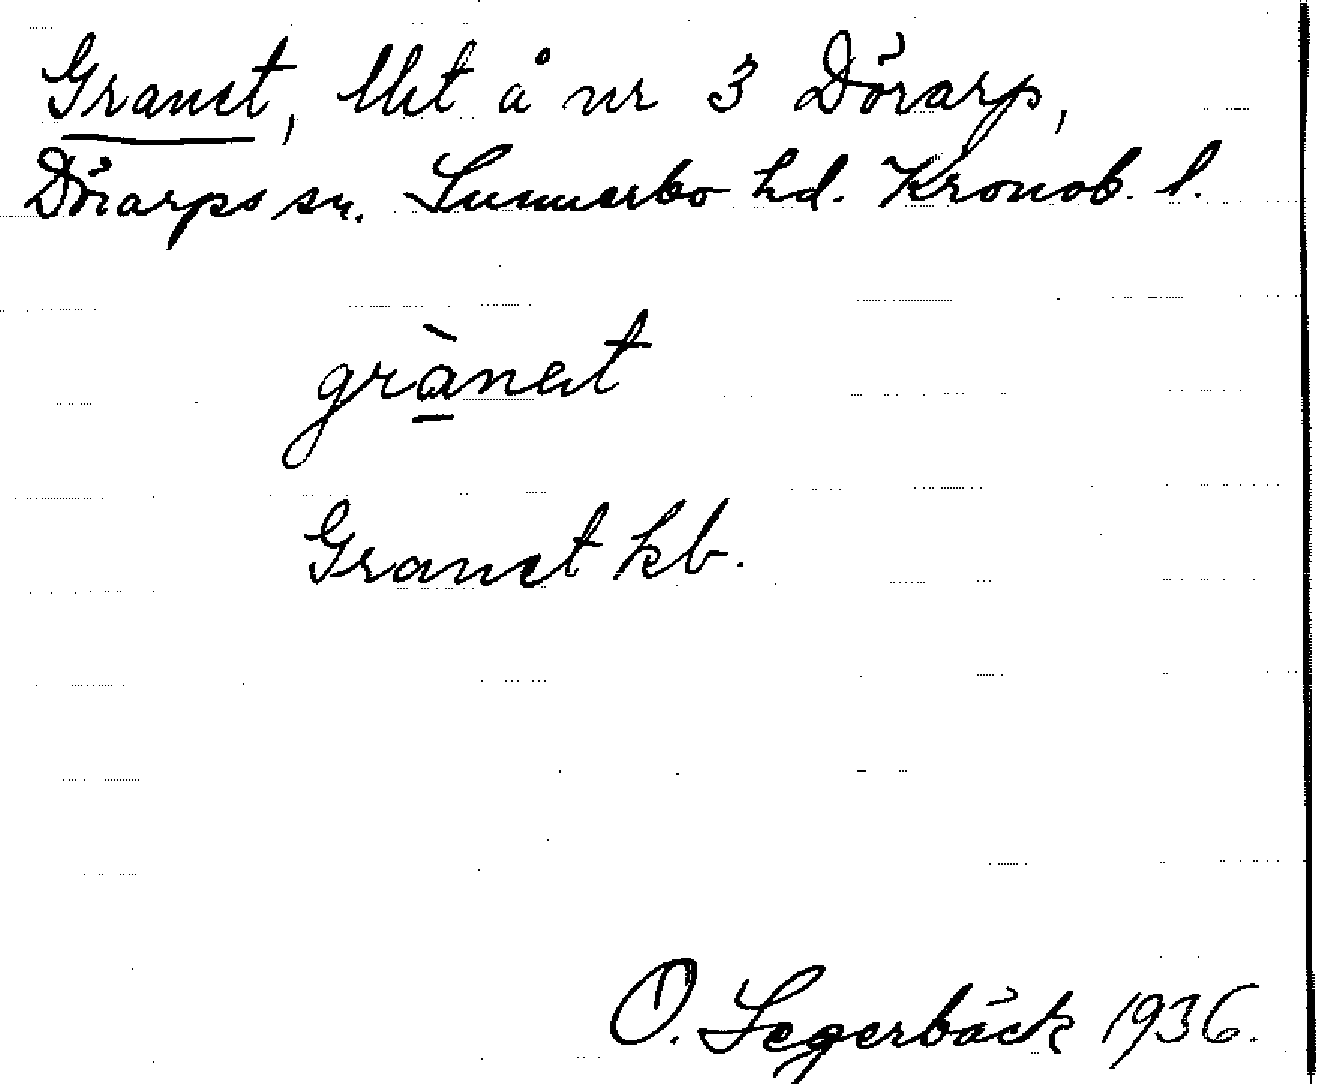 Granet, Utet å nr 3 Dörarp,
Dörarps sn. Sunnerbo hd. Kronob. l.
grànet
Granet kb.
O. Segerbäck 1936.